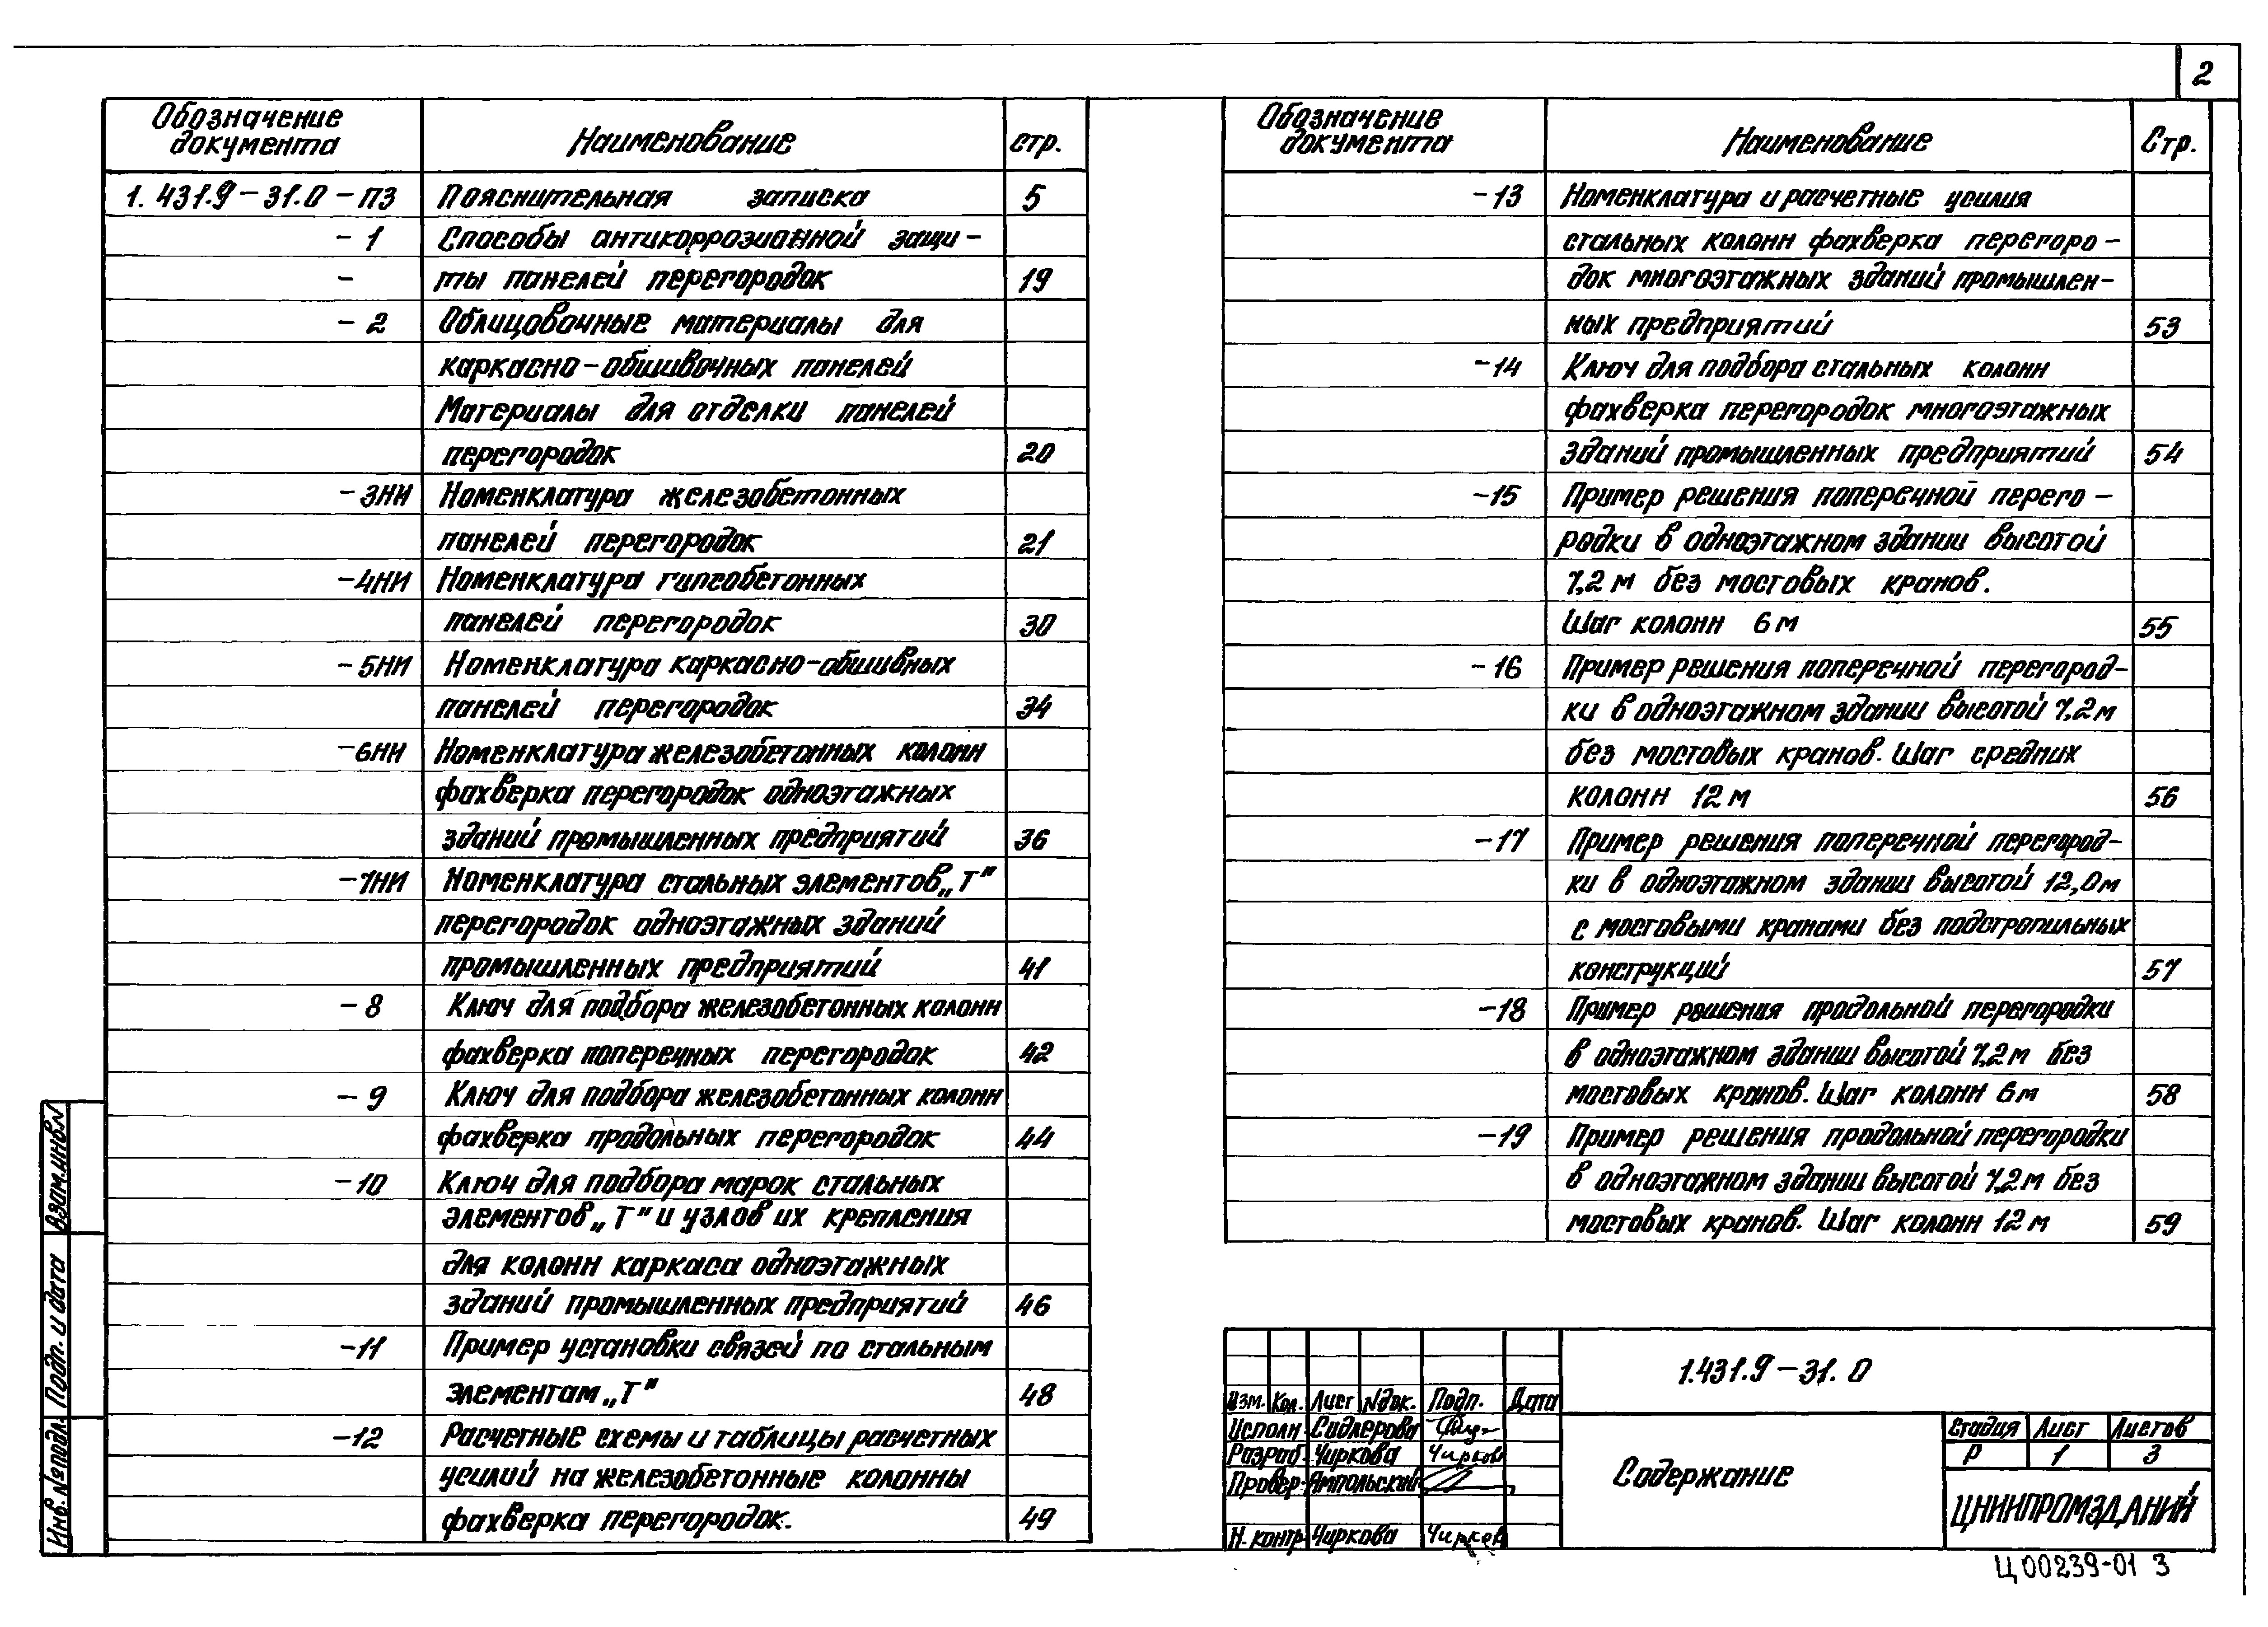 2
Обозначение документа Наименование стр.
1.431.9-31.0-ПЗ Пояснительная записка 5
-1 Способы антикоррозионной защи-
- ты панелей перегородок 19
-2 Облицовочные материалы для
каркасно-обшивочных панелей
Материалы для отделки панелей
перегородок 20
-3НИ Номенклатура железобетонных
панелей перегородок 21
-4НИ Номенклатура гипсобетонных
панелей перегородок 30
-5НИ Номенклатура каркасно-обшивных
панелей перегородок 34
-6НИ Номенклатура железобетонных колонн
фахверка перегородок одноэтажных
зданий промышленных предприятий 36
-7НИ Номенклатура стальных элементов „Т"
перегородок одноэтажных зданий
промышленных предприятий 41
-8 Ключ для подбора железобетонных колонн
фахверка поперечных перегородок 42
-9 Ключ для подбора железобетонных колонн
фахверка продольных перегородок 44
-10 Ключ для подбора марок стальных
элементов „Т" и узлов их крепления
для колонн каркаса одноэтажных
зданий промышленных предприятий 46
-11 Пример установки связей по стальным
элементам „Т" 48
-12 Расчетные схемы и таблицы расчетных
усилий на железобетонные колонны
фахверка перегородок. 49
Обозначение документа Наименование Стр.
-13 Номенклатура и расчетные усилия
стальных колонн фахверка перегоро-
док многоэтажных зданий промышлен-
ных предприятий 53
-14 Ключ для подбора стальных колонн
фахверка перегородок многоэтажных
зданий промышленных предприятий 54
-15 Пример решения поперечной перего-
родки в одноэтажном здании высотой
7,2 м без мостовых кранов.
Шаг колонн 6 м 55
-16 Пример решения поперечной перегород-
ки в одноэтажном здании высотой 7,2 м
без мостовых кранов. Шаг средних
колонн 12 м 56
-17 Пример решения поперечной перегород-
ки в одноэтажном здании высотой 12,0 м
с мостовыми кранами без подстропильных
конструкций 57
-18 Пример решения продольной перегородки
в одноэтажном здании высотой 7,2 м без
мостовых кранов. Шаг колонн 6 м 58
-19 Пример решения продольной перегородки
в одноэтажном здании высотой 7,2 м без
мостовых кранов. Шаг колонн 12 м 59
Взам.инв.N
Подп. и дата
Инв. № подл.
1.431.9-31.0
Изм. Кол. Лист Nдок. Подп. Дата
Исполн. Садлерова
Разраб. Чиркова Чирков
Провер. Ямпольский
Н. контр. Чиркова Чирков
Содержание
Стадия Лист Листов
Р 1 3
ЦНИИПРОМЗДАНИЙ
Ц00239-01 3